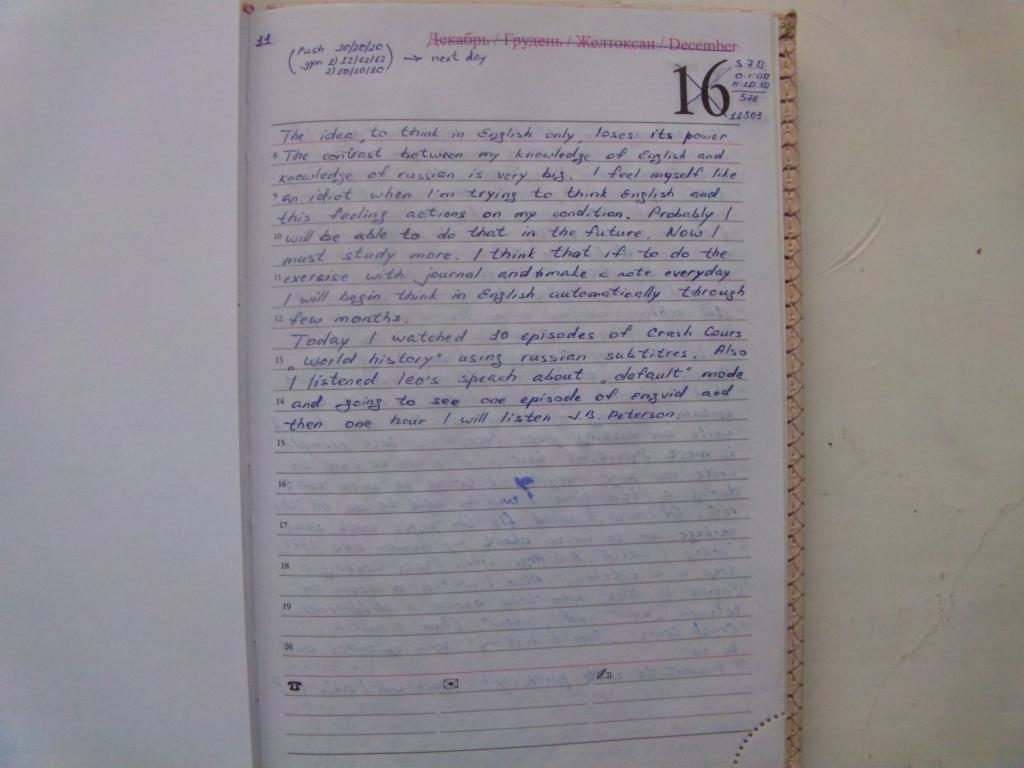 11
Декабрь / Грудень / Желтоксан / December
(Push 20/20/20
gym 1) 12/12/12 → next day
2) 10/10/10)
16
520
11503
The idea, to think in English only, loses its power
8 The contrast between my knowledge of English and
knowledge of russian is very big. I feel myself like
9 an idiot when I'm trying to think English and
this feeling actions on my condition. Probably I
10 will be able to do that in the future. Now I
must study more. I think that if to do the
11 exersise with journal and make a note everyday
I will begin think in English automatically through
12 few months.
Today I watched 10 episodes of Crash Cours
13 „World history" using russian subtitres. Also
I listened leo's speach about „default" mode
14 and going to see one episode of engvid and
then one hour I will listen J.B. Peterson.
15
16
17
18
19
20